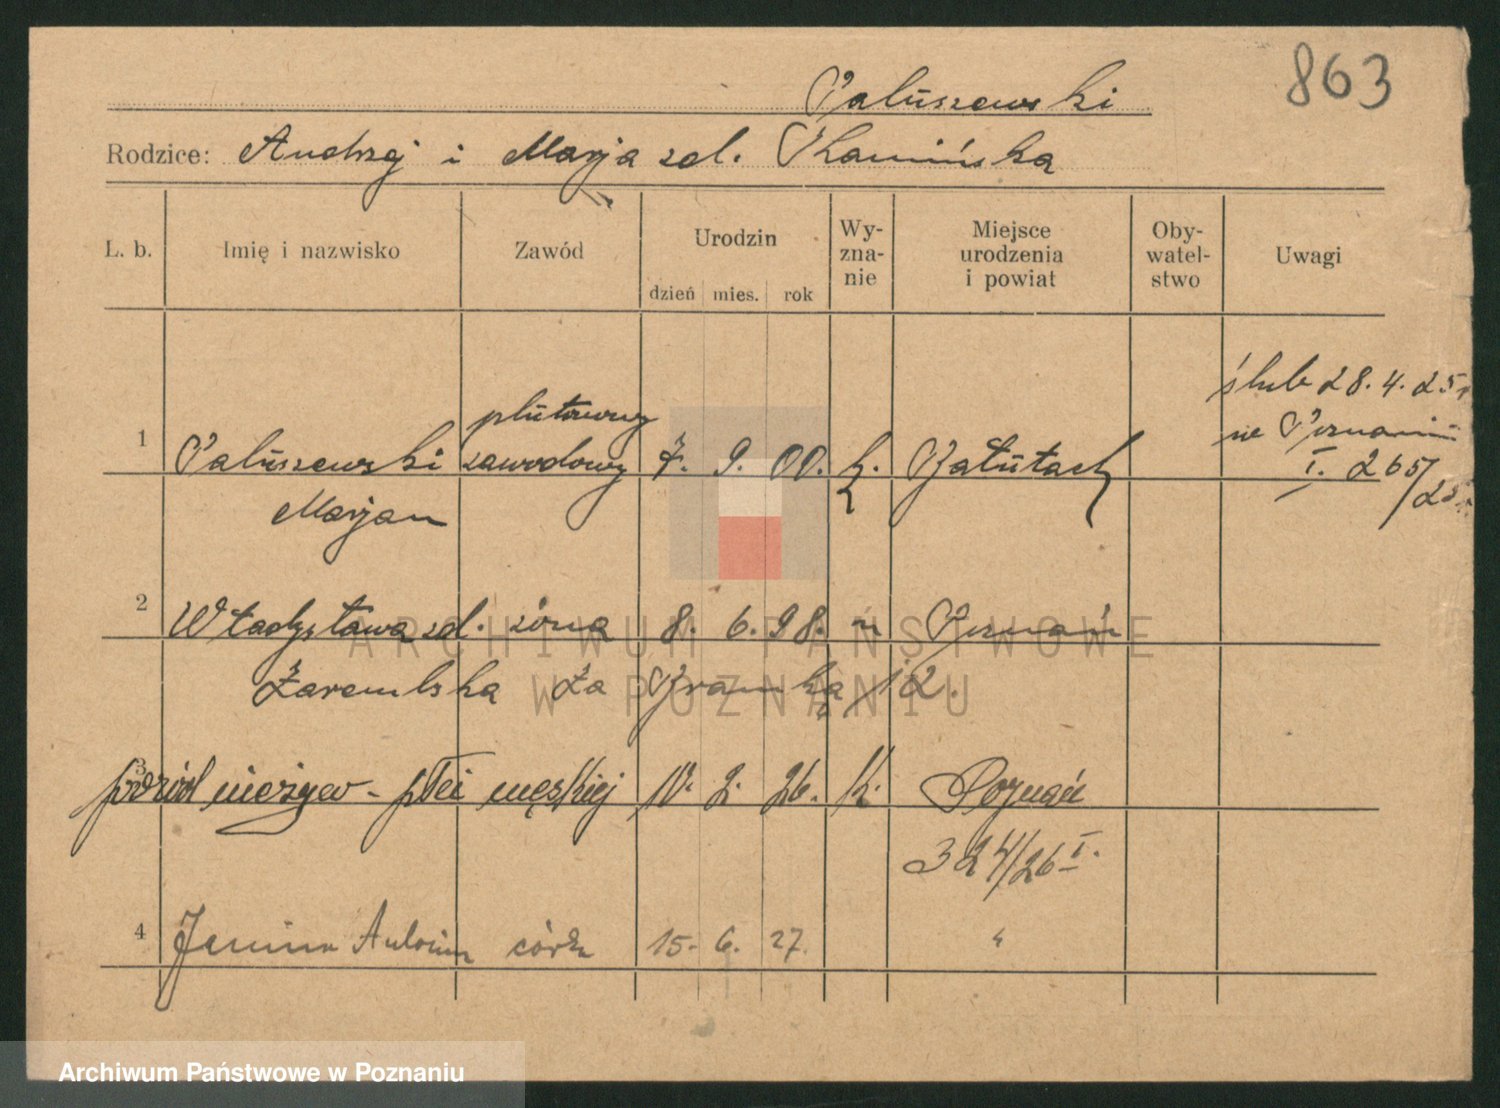 863
Paluszewski
Rodzice: Andrzej i Marja zd. Kamińska
L. b. Imię i nazwisko Zawód Urodzin dzień mies. rok Wy-zna-nie Miejsce urodzenia i powiat Oby-watel-stwo Uwagi
ślub 28.4.25
plutonowy
we Poznaniu
1 Paluszewski zawodowy 7. 9. 00. k.
I. 265/25
Marjan
2 Władysława zd. żona 8. 6. 98. " Poznań
Zaremska Za Bramką 12.
3 podrzód nieżyw - płci męskiej 10. 2. 26. k. Poznań
324/26 I.
4 Janina Antonina córka 15. 6. 27. "
ARCHIWUM PAŃSTWOWE
W POZNANIU
Archiwum Państwowe w Poznaniu